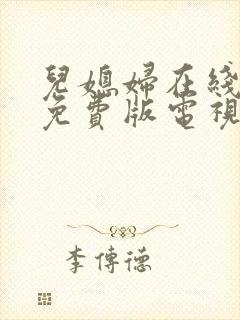 兒媳婦在綫
免費版電視
李傳德